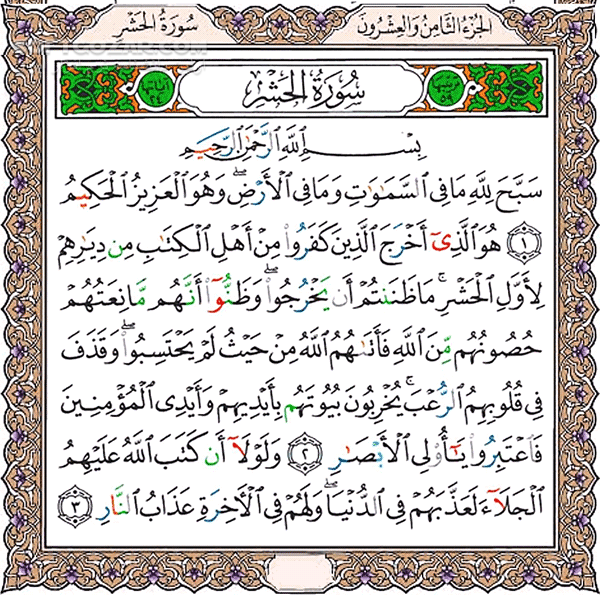 الجزء الثامن والعشرون
سورة الحشر
ترتيبها ٥٩
سُورَةُ الحَشْرِ
آياتها ٢٤
بِسْمِ ٱللَّهِ ٱلرَّحْمَٰنِ ٱلرَّحِيمِ
سَبَّحَ لِلَّهِ مَا فِى ٱلسَّمَٰوَٰتِ وَمَا فِى ٱلْأَرْضِ ۖ وَهُوَ ٱلْعَزِيزُ ٱلْحَكِيمُ
۝١ هُوَ ٱلَّذِىٓ أَخْرَجَ ٱلَّذِينَ كَفَرُوا۟ مِنْ أَهْلِ ٱلْكِتَٰبِ مِن دِيَٰرِهِمْ
لِأَوَّلِ ٱلْحَشْرِ ۚ مَا ظَنَنتُمْ أَن يَخْرُجُوا۟ ۖ وَظَنُّوٓا۟ أَنَّهُم مَّانِعَتُهُمْ
حُصُونُهُم مِّنَ ٱللَّهِ فَأَتَىٰهُمُ ٱللَّهُ مِنْ حَيْثُ لَمْ يَحْتَسِبُوا۟ ۖ وَقَذَفَ
فِى قُلُوبِهِمُ ٱلرُّعْبَ ۚ يُخْرِبُونَ بُيُوتَهُم بِأَيْدِيهِمْ وَأَيْدِى ٱلْمُؤْمِنِينَ
فَٱعْتَبِرُوا۟ يَٰٓأُو۟لِى ٱلْأَبْصَٰرِ ۝٢ وَلَوْلَآ أَن كَتَبَ ٱللَّهُ عَلَيْهِمُ
ٱلْجَلَآءَ لَعَذَّبَهُمْ فِى ٱلدُّنْيَا ۖ وَلَهُمْ فِى ٱلْءَاخِرَةِ عَذَابُ ٱلنَّارِ ۝٣